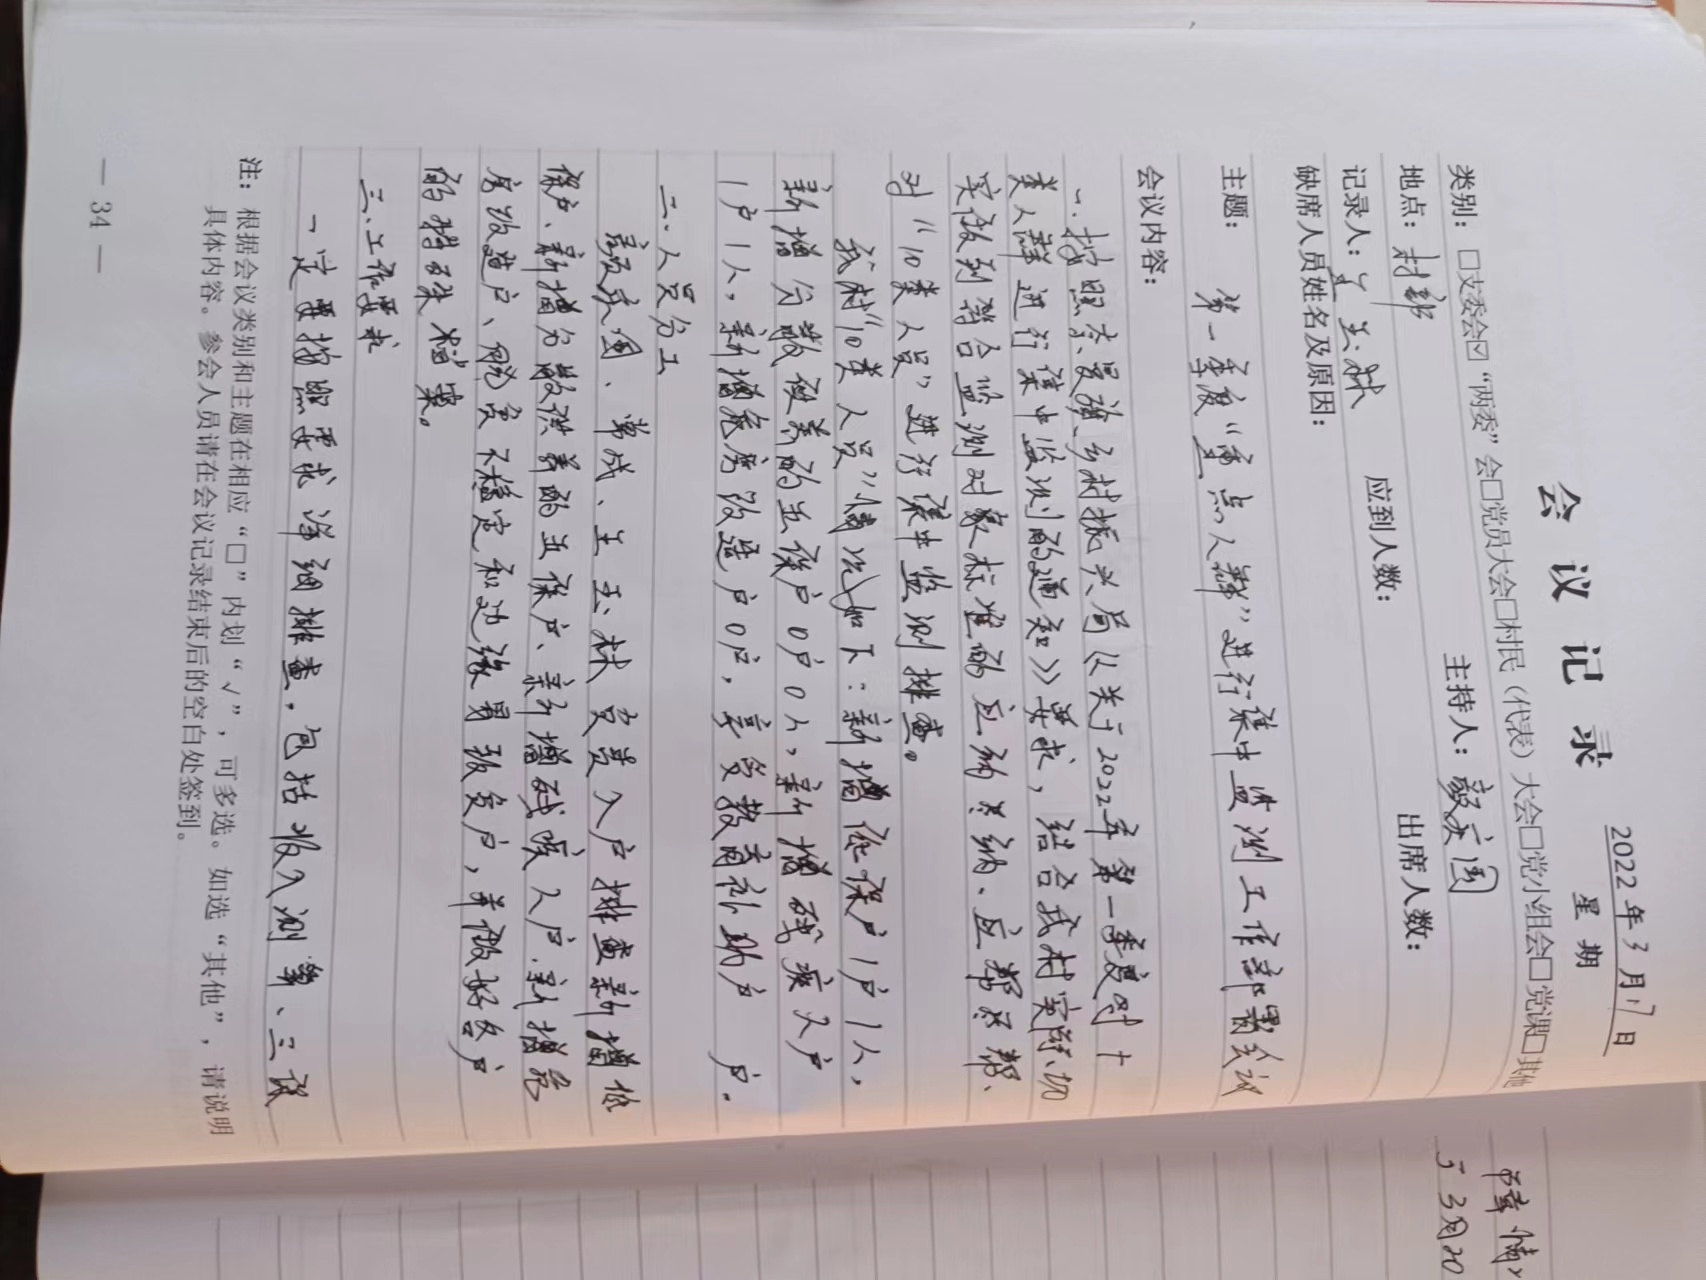 会议记录
2022年3月17日
星期
类别：□支委会☑“两委”会□党员大会□村民（代表）大会□党小组会□党课□其他
地点：村部 主持人：庆国
记录人：王玉林 应到人数： 出席人数：
缺席人员姓名及原因：
主题： 第一季度“重点人群”进行集中监测工作部署会议
会议内容：
一、按照奈曼旗乡村振兴局《关于2022年第一季度对十
类人群进行集中监测的通知》要求，结合我村实际、切
实做到符合监测对象标准的应纳尽纳、应帮尽帮、
对“10类人员”进行集中监测排查。
我村“10类人员”情况如下：新增低保户1户1人，
新增分散供养的五保户0户0人，新增残疾人户
1户1人，新增危房改造户0户，享受教育补助户 户。
二、人员分工
庆国、常成、王玉林负责入户排查新增低
保户、新增分散供养的五保户、新增残疾人户、新增危
房改造户、脱贫不稳定和边缘易致贫户，并做好各户
的档案。
三、工作要求
一定要按照要求详细排查，包括收入测算、三保
注：根据会议类别和主题在相应“□”内划“√”，可多选。如选“其他”，请说明
具体内容。参会人员请在会议记录结束后的空白处签到。
— 34 —
障情
3月20